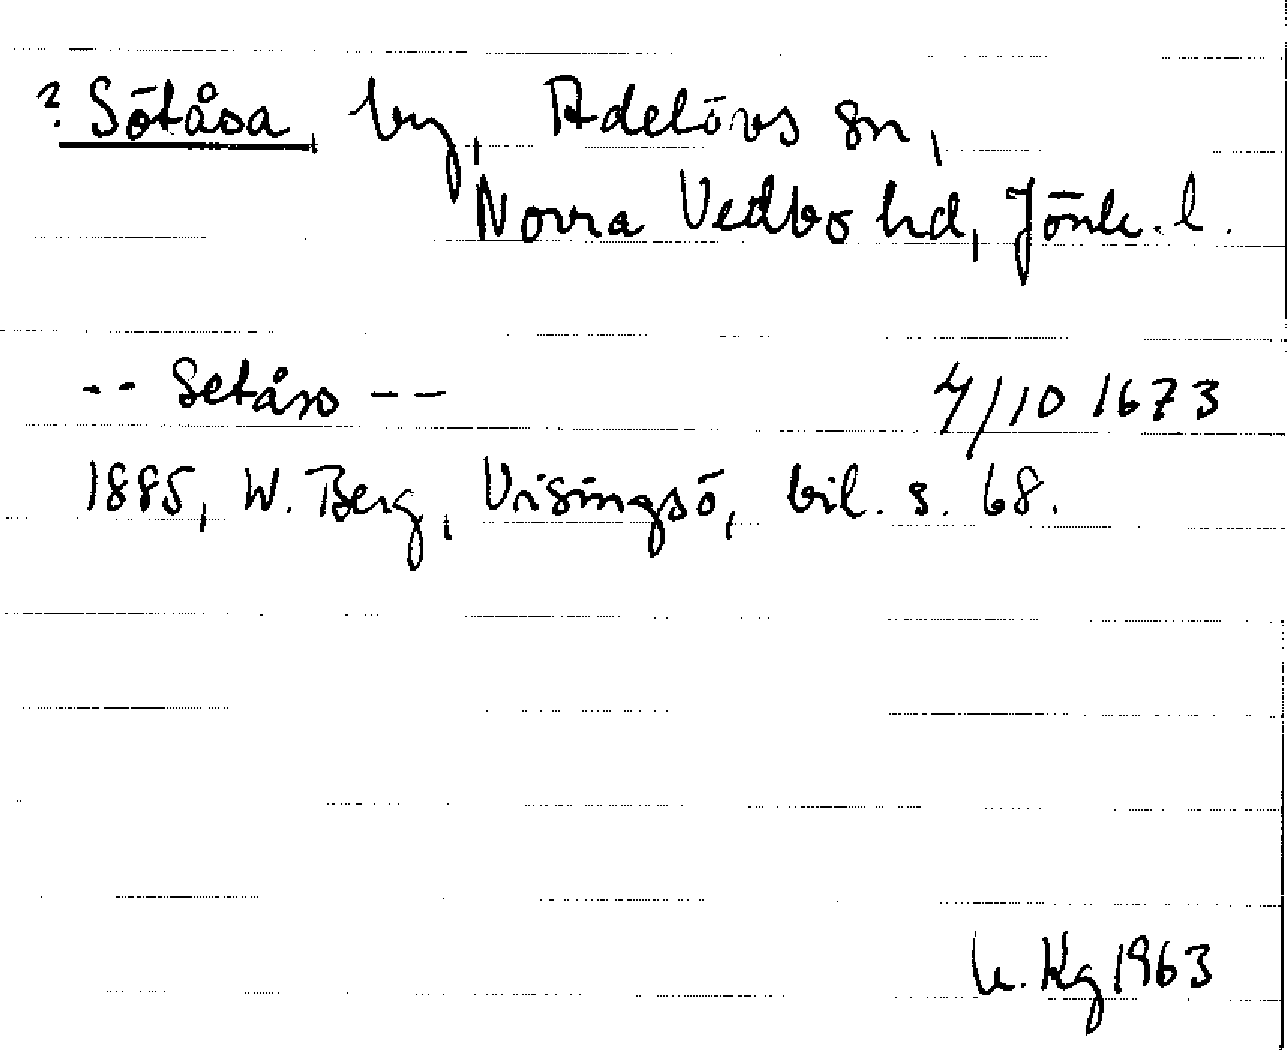 ? Sötåsa, by, Adelövs sn,
Norra Vedbo hd, Jönk. l.
-- Setåss -- 4/10 1673
1885, W. Berg, Visingsö, bil. s. 68.
Kg 1963